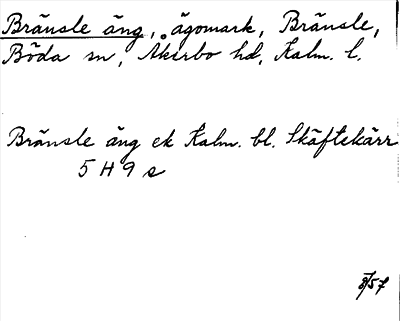 Bränsle äng, ägomark, Bränsle,
Böda sn, Åkerbo hd, Kalm. l.
Bränsle äng ek Kalm. bl. Skäftekärr
5 H 9 s